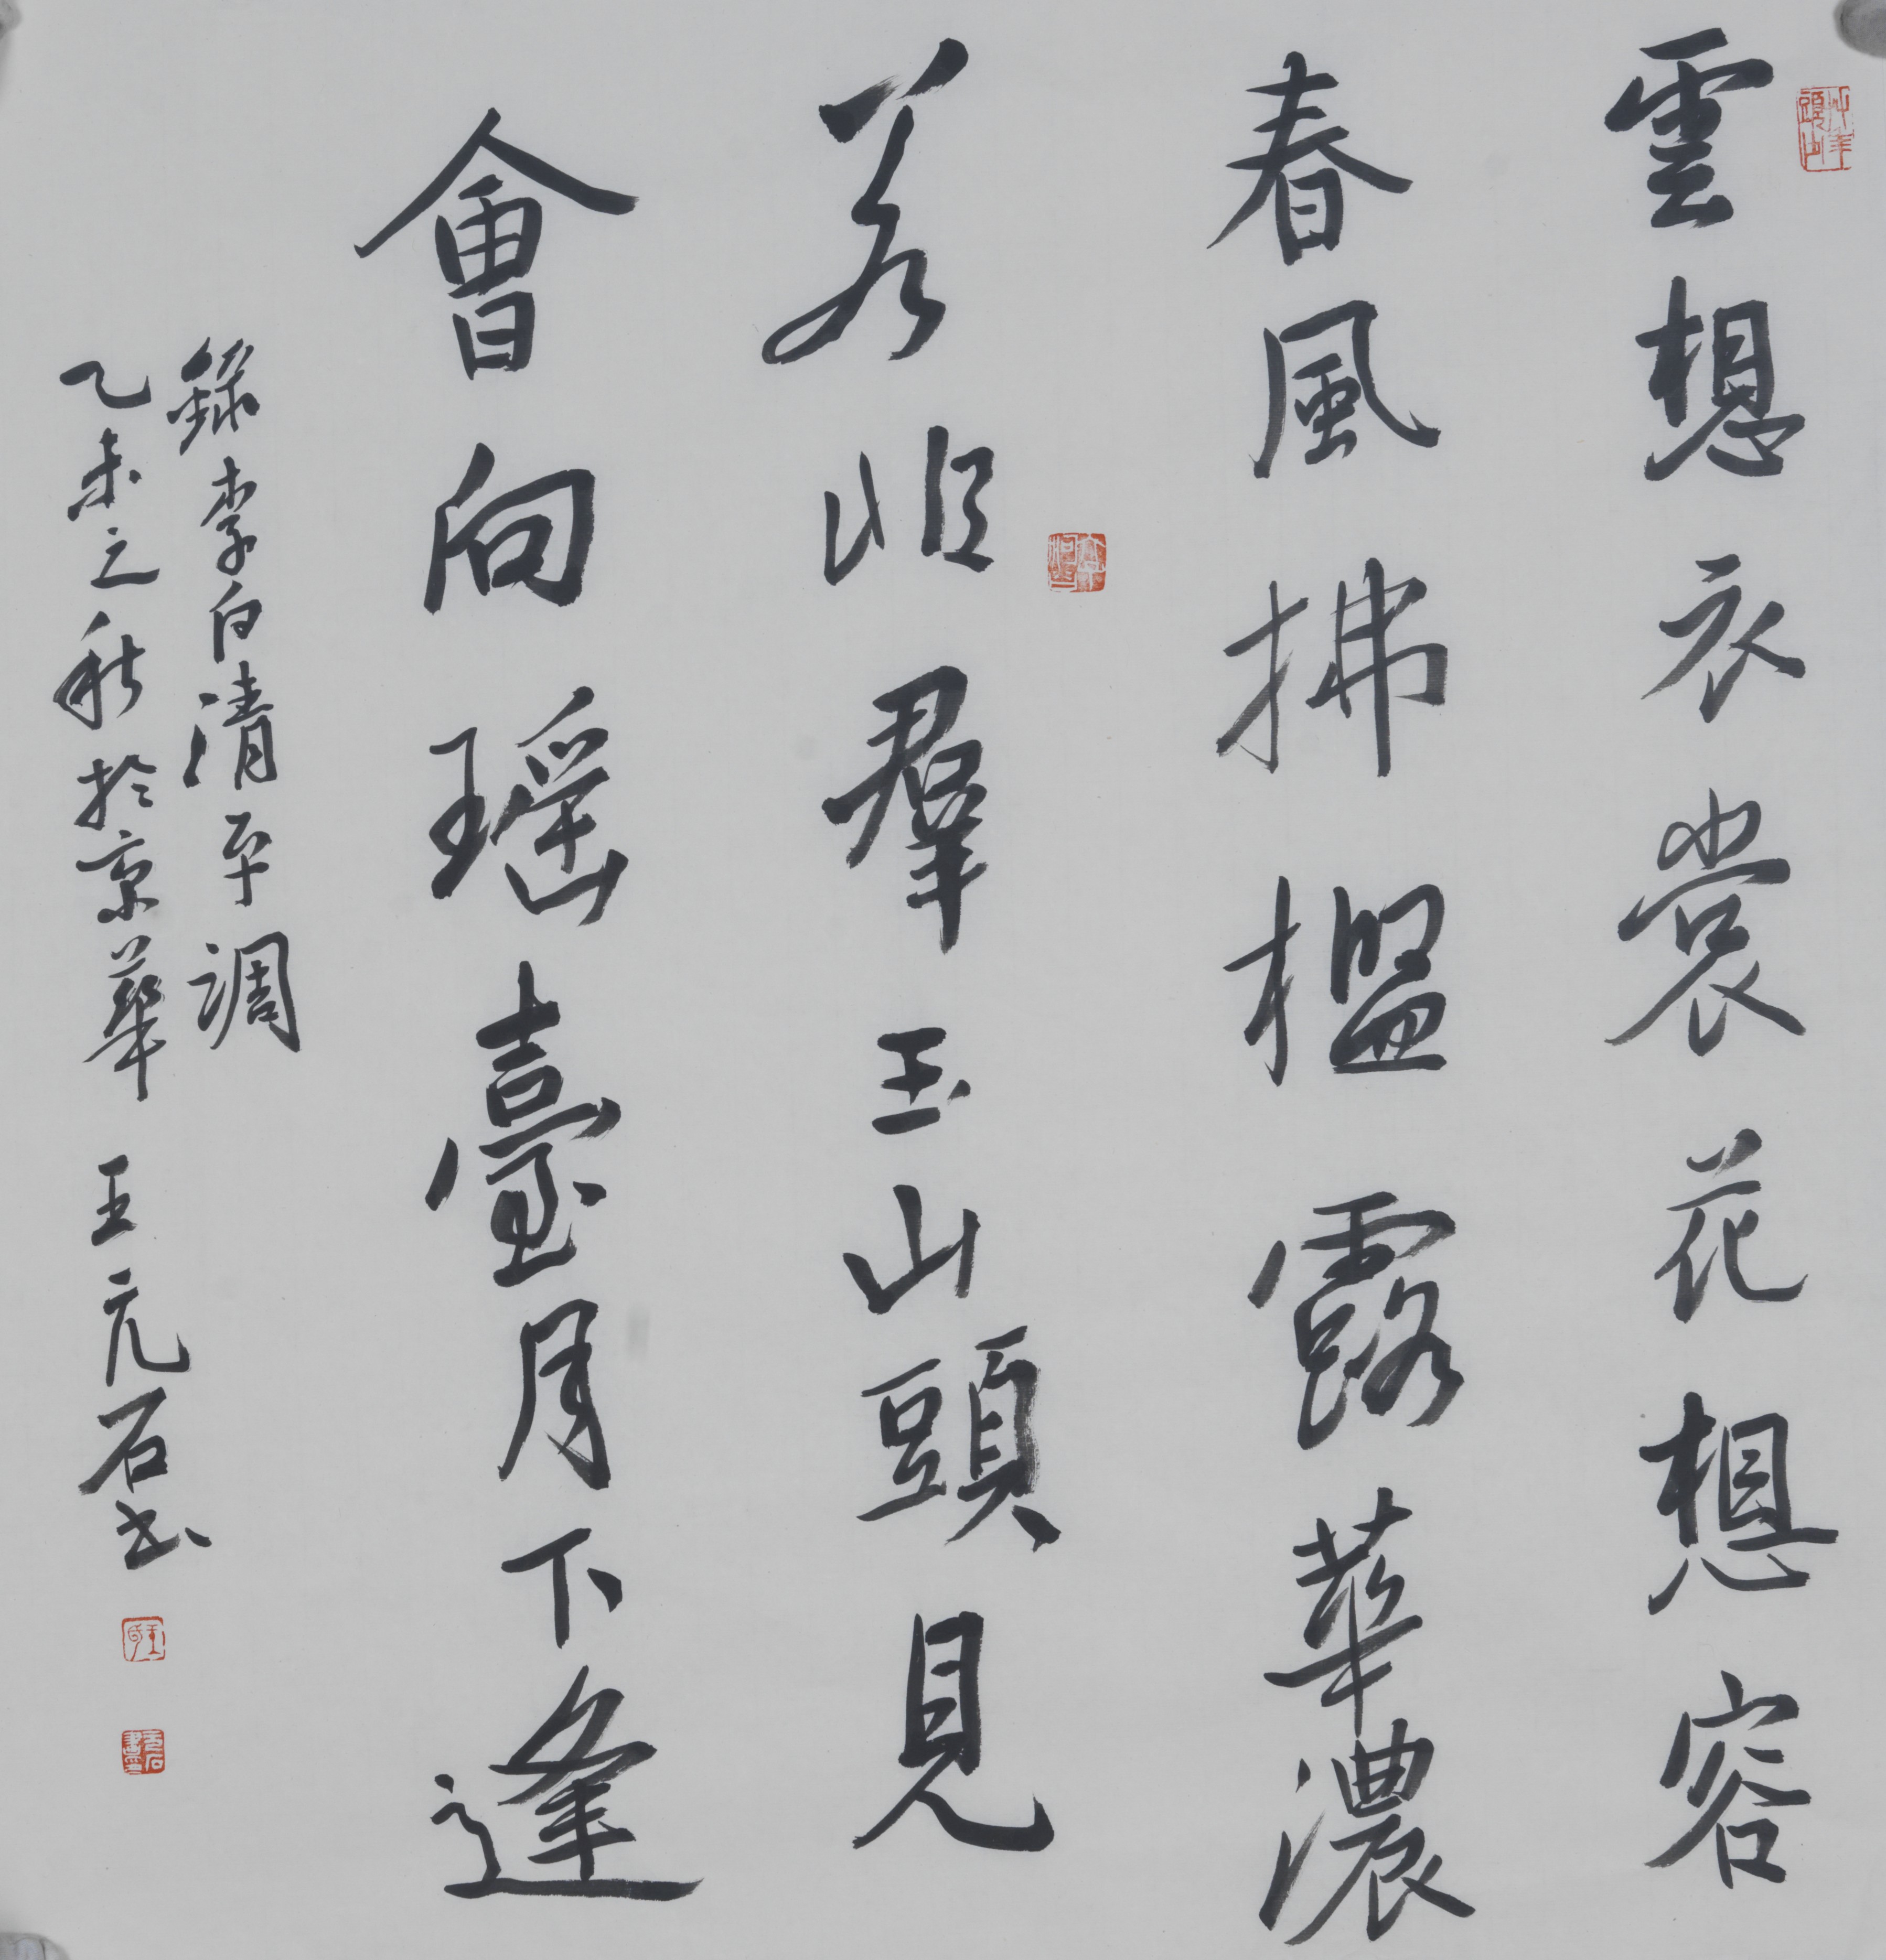 雲想衣裳花想容
春風拂檻露華濃
若非羣玉山頭見
會向瑶臺月下逢
錄李白清平調
乙未之秋於京華 王亢石书